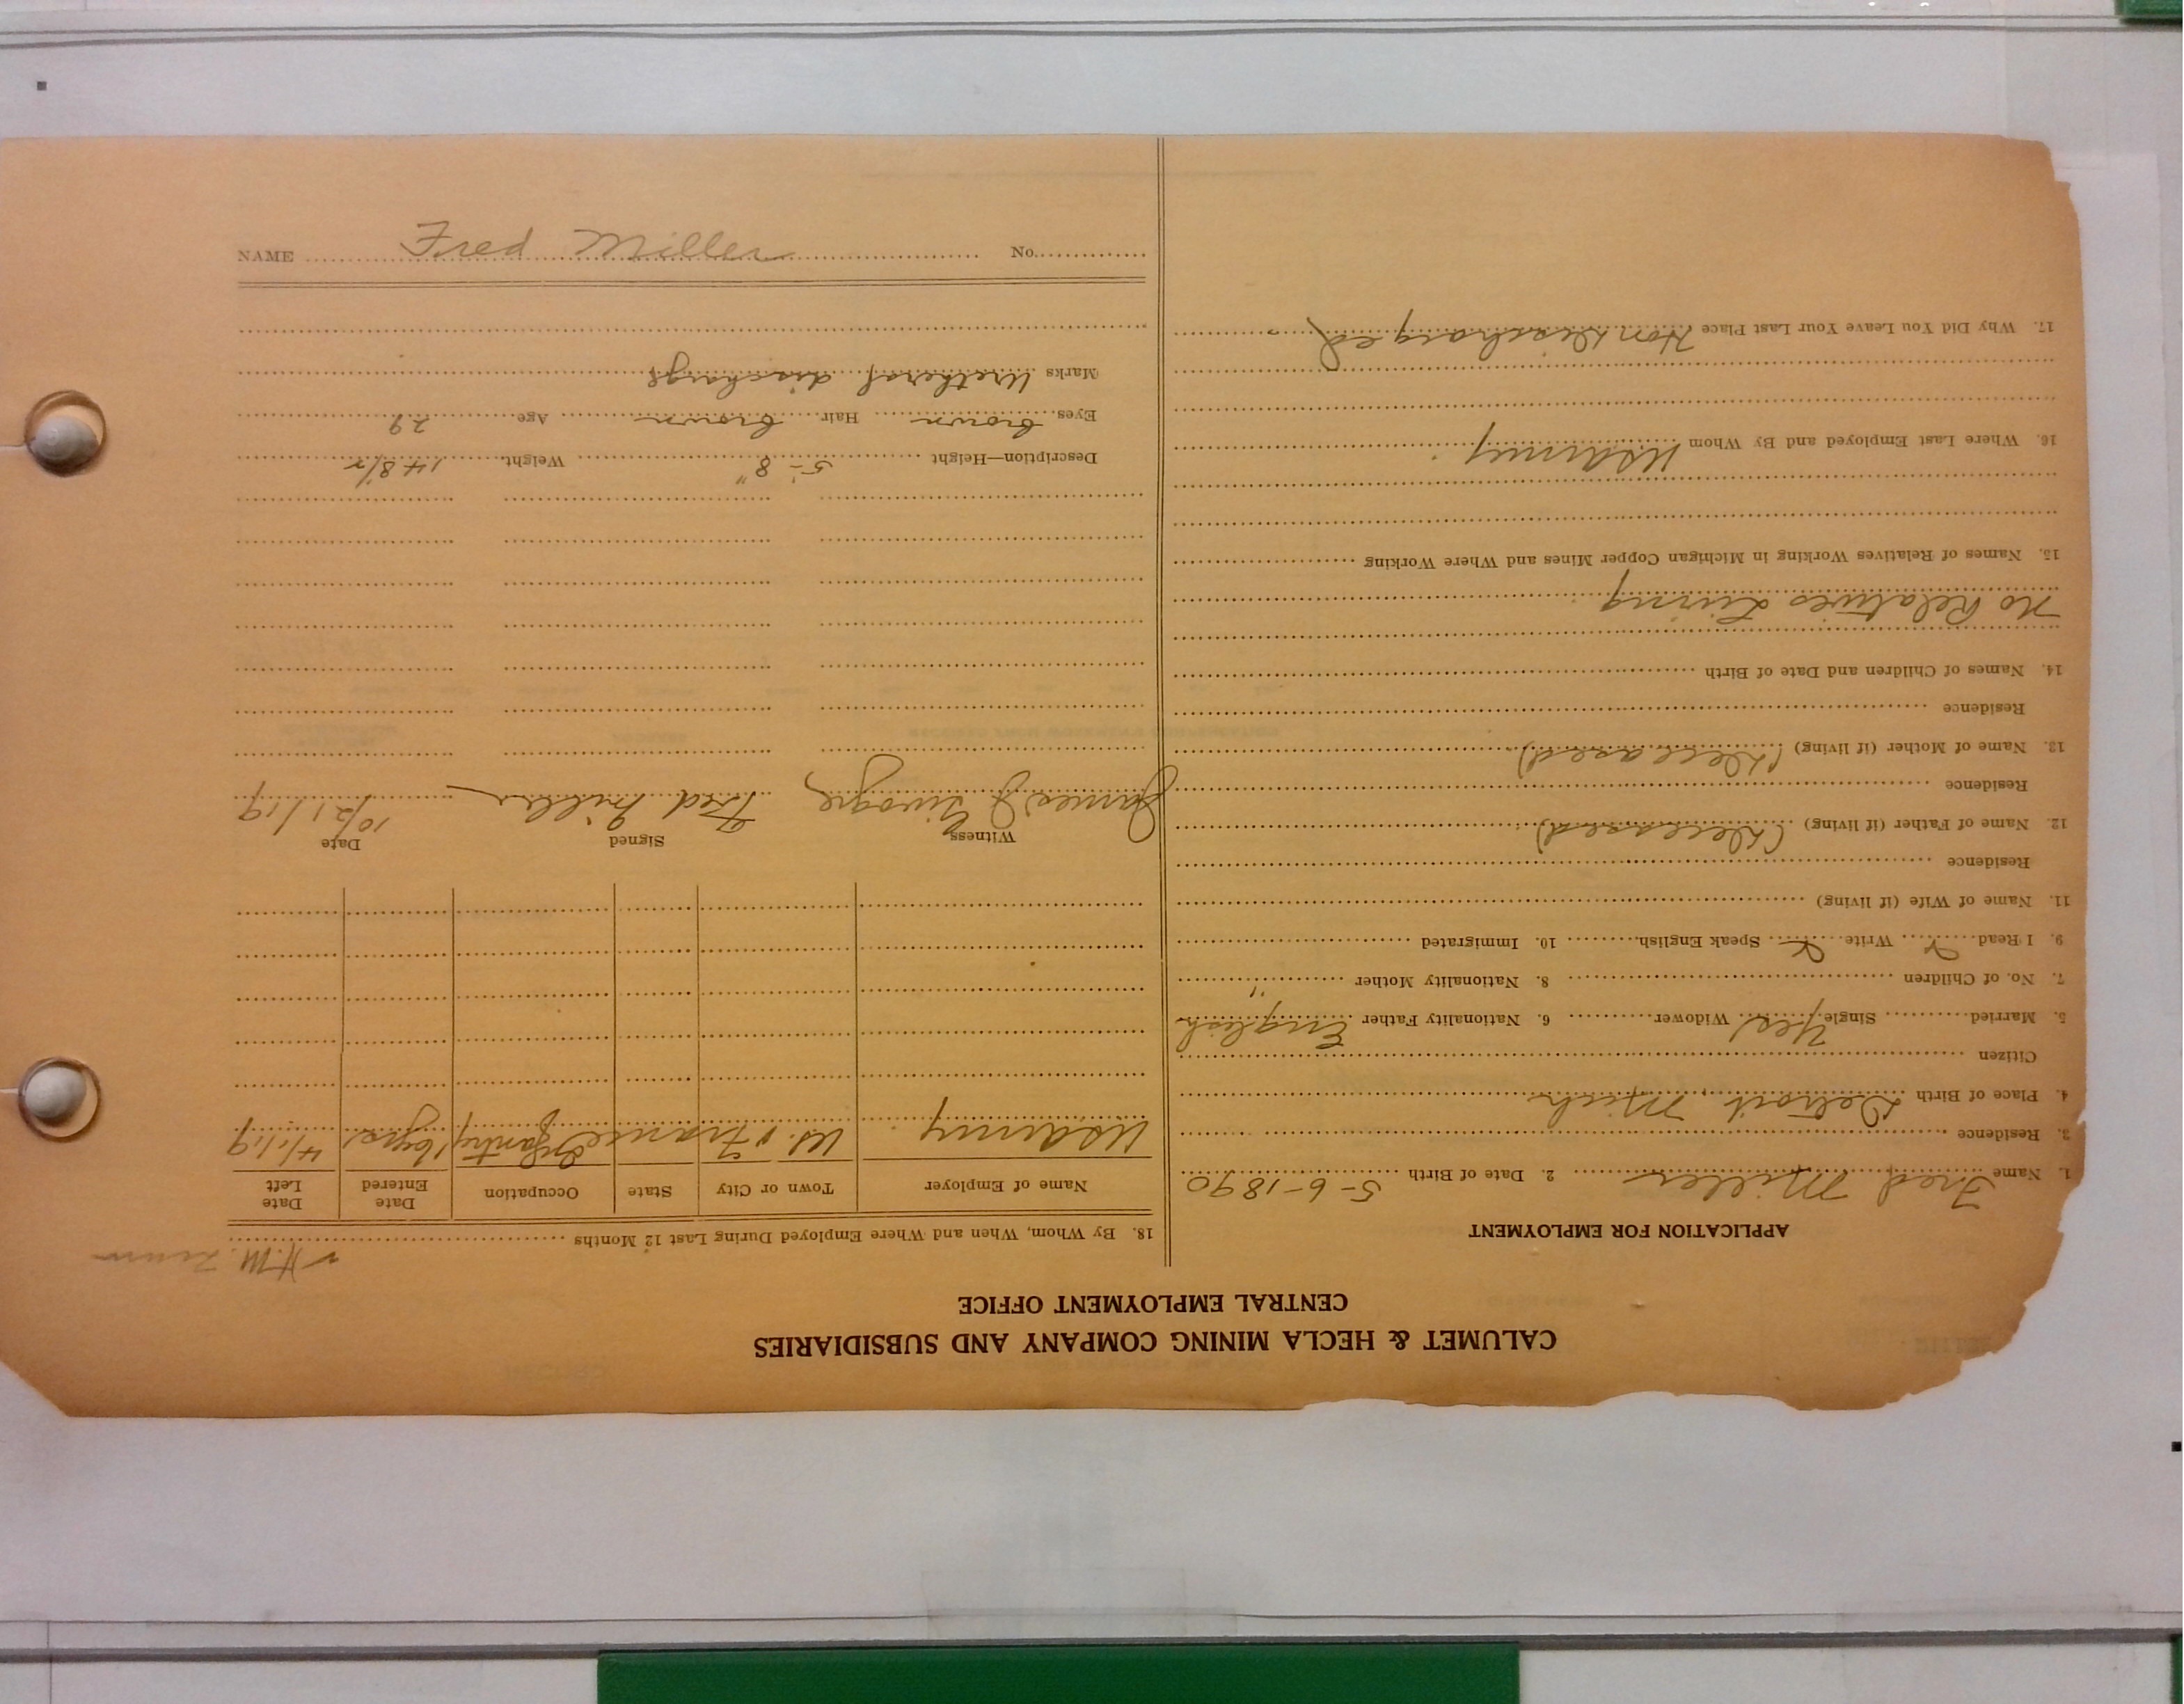 CALUMET & HECLA MINING COMPANY AND SUBSIDIARIES
CENTRAL EMPLOYMENT OFFICE
APPLICATION FOR EMPLOYMENT
1. Name Fred Miller 2. Date of Birth 5-6-1890
3. Residence
4. Place of Birth Detroit, Mich
Citizen
5. Married Single Yes Widower 6. Nationality Father English
7. No. of Children 8. Nationality Mother "
9. I Read Write Speak English 10. Immigrated
11. Name of Wife (if living)
Residence
12. Name of Father (if living) (Deceased)
Residence
13. Name of Mother (if living) (Deceased)
Residence
14. Names of Children and Date of Birth
No Relatives Living
15. Names of Relatives Working in Michigan Copper Mines and Where Working
16. Where Last Employed and By Whom US Army
17. Why Did You Leave Your Last Place Hon Discharged
H. M.
18. By Whom, When and Where Employed During Last 12 Months
Name of Employer Town or City State Occupation Date Entered Date Left
US Army US. & France Infantry 4/1/19
Witness Signed Date
James J Fred Miller 10/21/19
Description—Height 5-8" Weight 148½
Eyes brown Hair brown Age 29
Marks Uretheral discharge
NAME Fred Miller No.